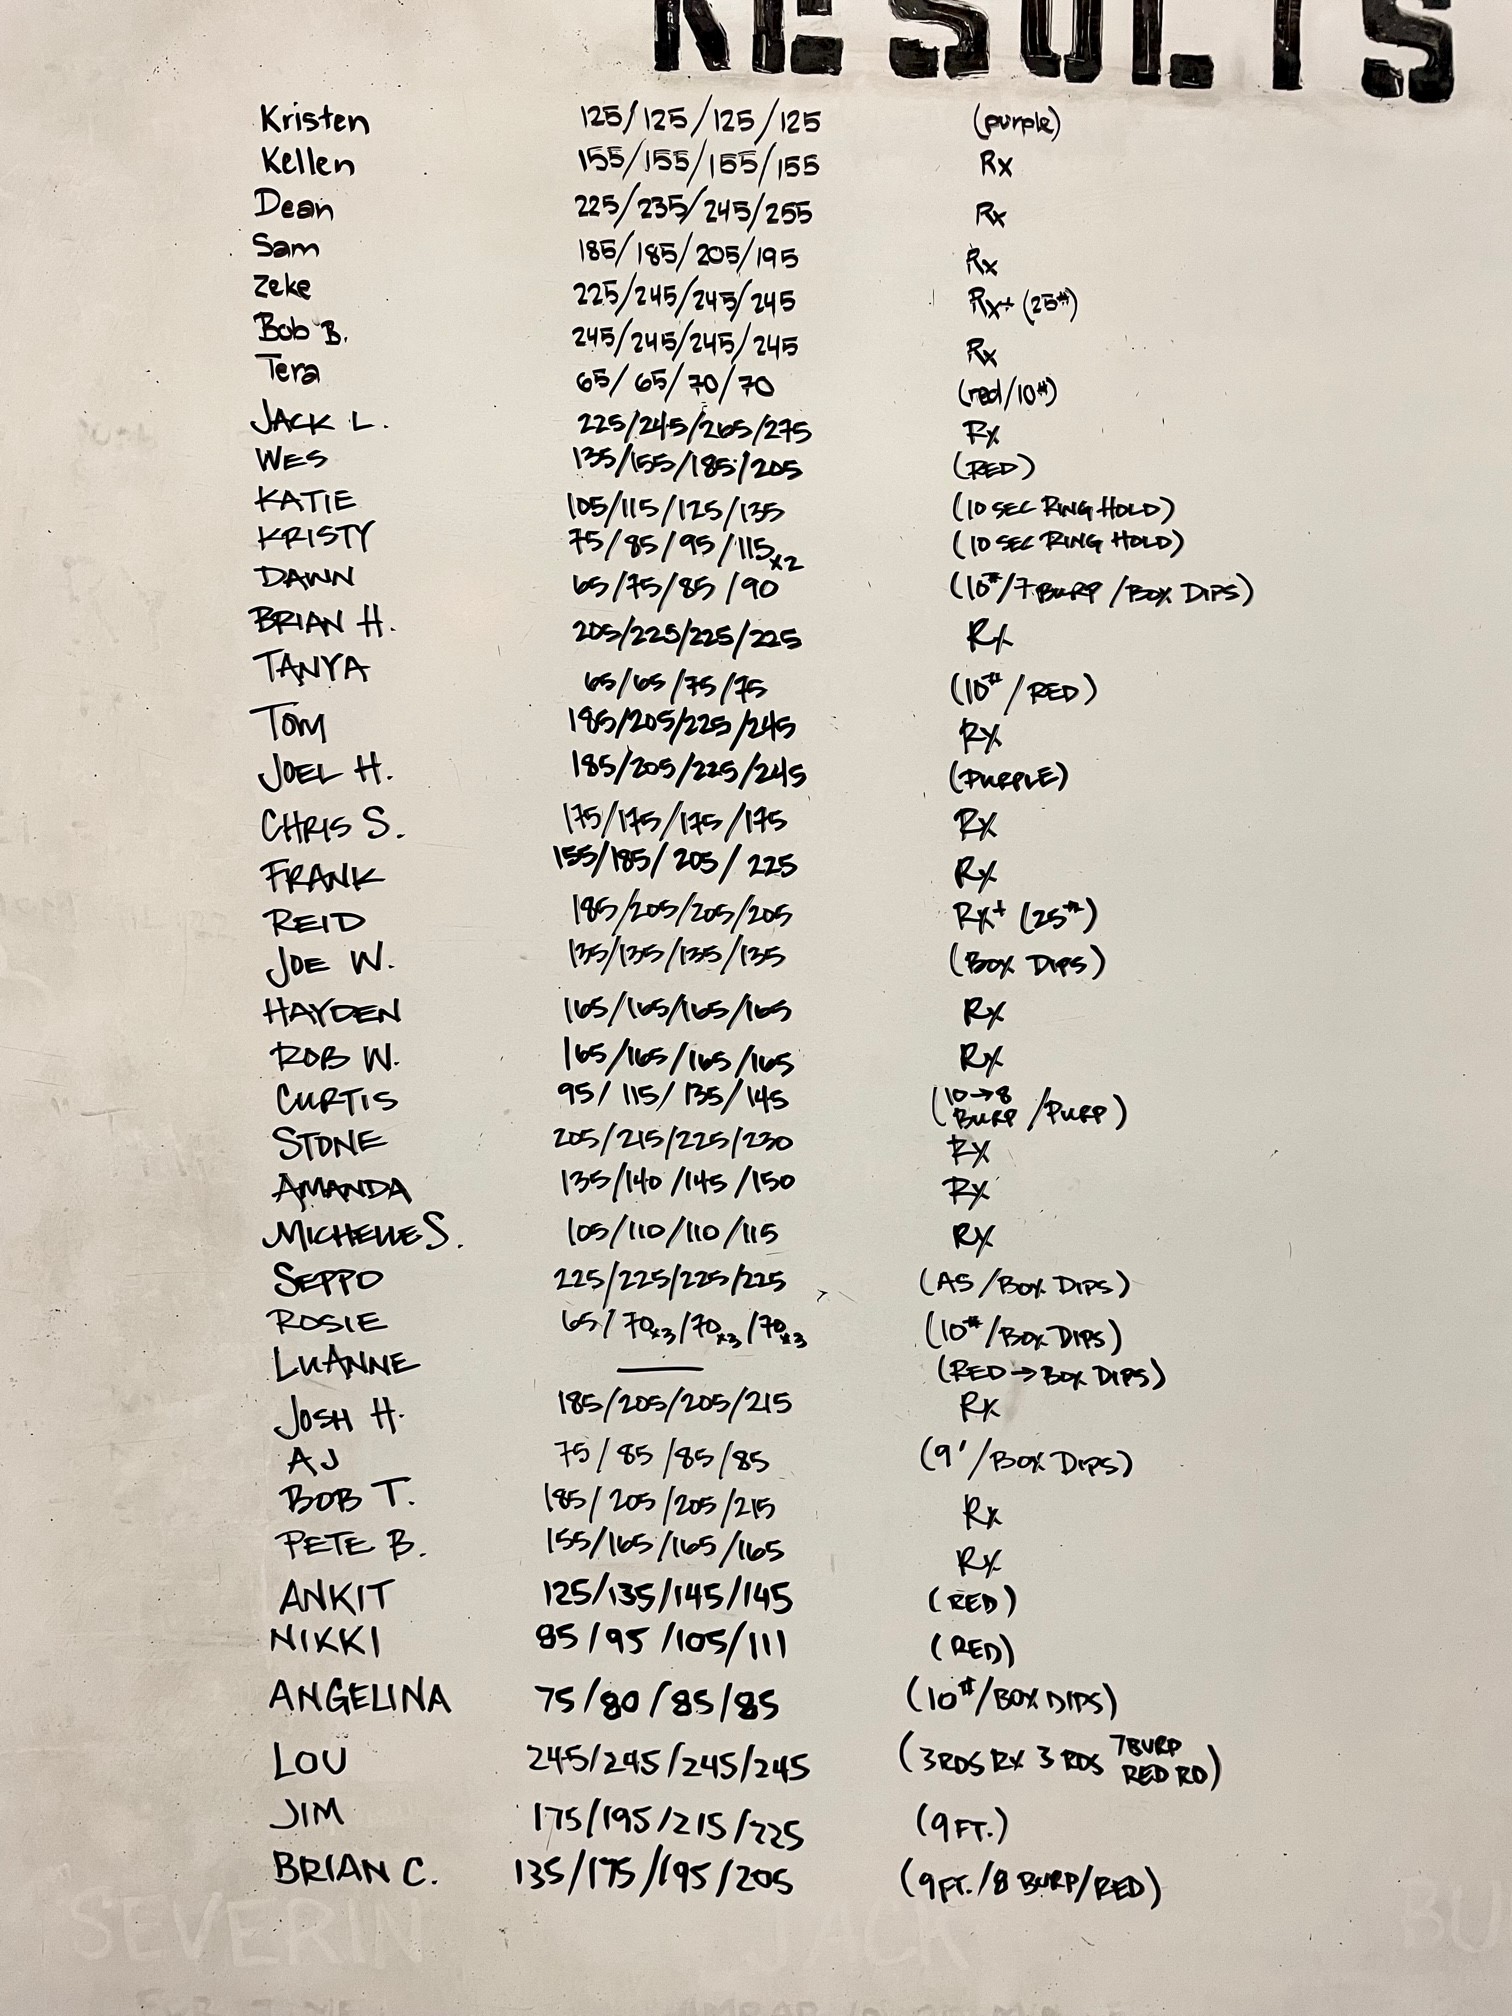 RESULTS
Kristen 125/125/125/125 (purple)
Kellen 155/155/155/155 Rx
Dean 225/235/245/255 Rx
Sam 185/185/205/195 Rx
Zeke 225/245/245/245 Rx+ (25#)
Bob B. 245/245/245/245 Rx
Tera 65/65/70/70 (red/10#)
JACK L. 225/245/265/275 Rx
WES 135/155/185/205 (RED)
KATIE 105/115/125/135 (10 SEC RING HOLD)
KRISTY 75/85/95/115x2 (10 SEC RING HOLD)
DAWN 65/75/85/90 (10#/7 BURP/BOX DIPS)
BRIAN H. 205/225/225/225 Rx
TANYA 65/65/75/75 (10#/RED)
TOM 185/205/225/245 Rx
JOEL H. 185/205/225/245 (PURPLE)
CHRIS S. 175/175/175/175 Rx
FRANK 155/185/205/225 Rx
REID 185/205/205/205 Rx+ (25#)
JOE W. 135/135/135/135 (BOX DIPS)
HAYDEN 165/165/165/165 Rx
ROB W. 165/165/165/165 Rx
CURTIS 95/115/135/145 (10→8 BURP/PURP)
STONE 205/215/225/230 Rx
AMANDA 135/140/145/150 Rx
MICHELLE S. 105/110/110/115 Rx
SEPPO 225/225/225/225 (AS/BOX DIPS)
ROSIE 65/70x3/70x3/70x3 (10#/BOX DIPS)
LUANNE — (RED→BOX DIPS)
JOSH H. 185/205/205/215 Rx
AJ 75/85/85/85 (9'/BOX DIPS)
BOB T. 185/205/205/215 Rx
PETE B. 155/165/165/165 Rx
ANKIT 125/135/145/145 (RED)
NIKKI 85/95/105/111 (RED)
ANGELINA 75/80/85/85 (10#/BOX DIPS)
LOU 245/245/245/245 (3 RDS RX 3 RDS 7 BURP RED RD)
JIM 175/195/215/225 (9 FT.)
BRIAN C. 135/175/195/205 (9 FT./8 BURP/RED)
SEVERIN JACK